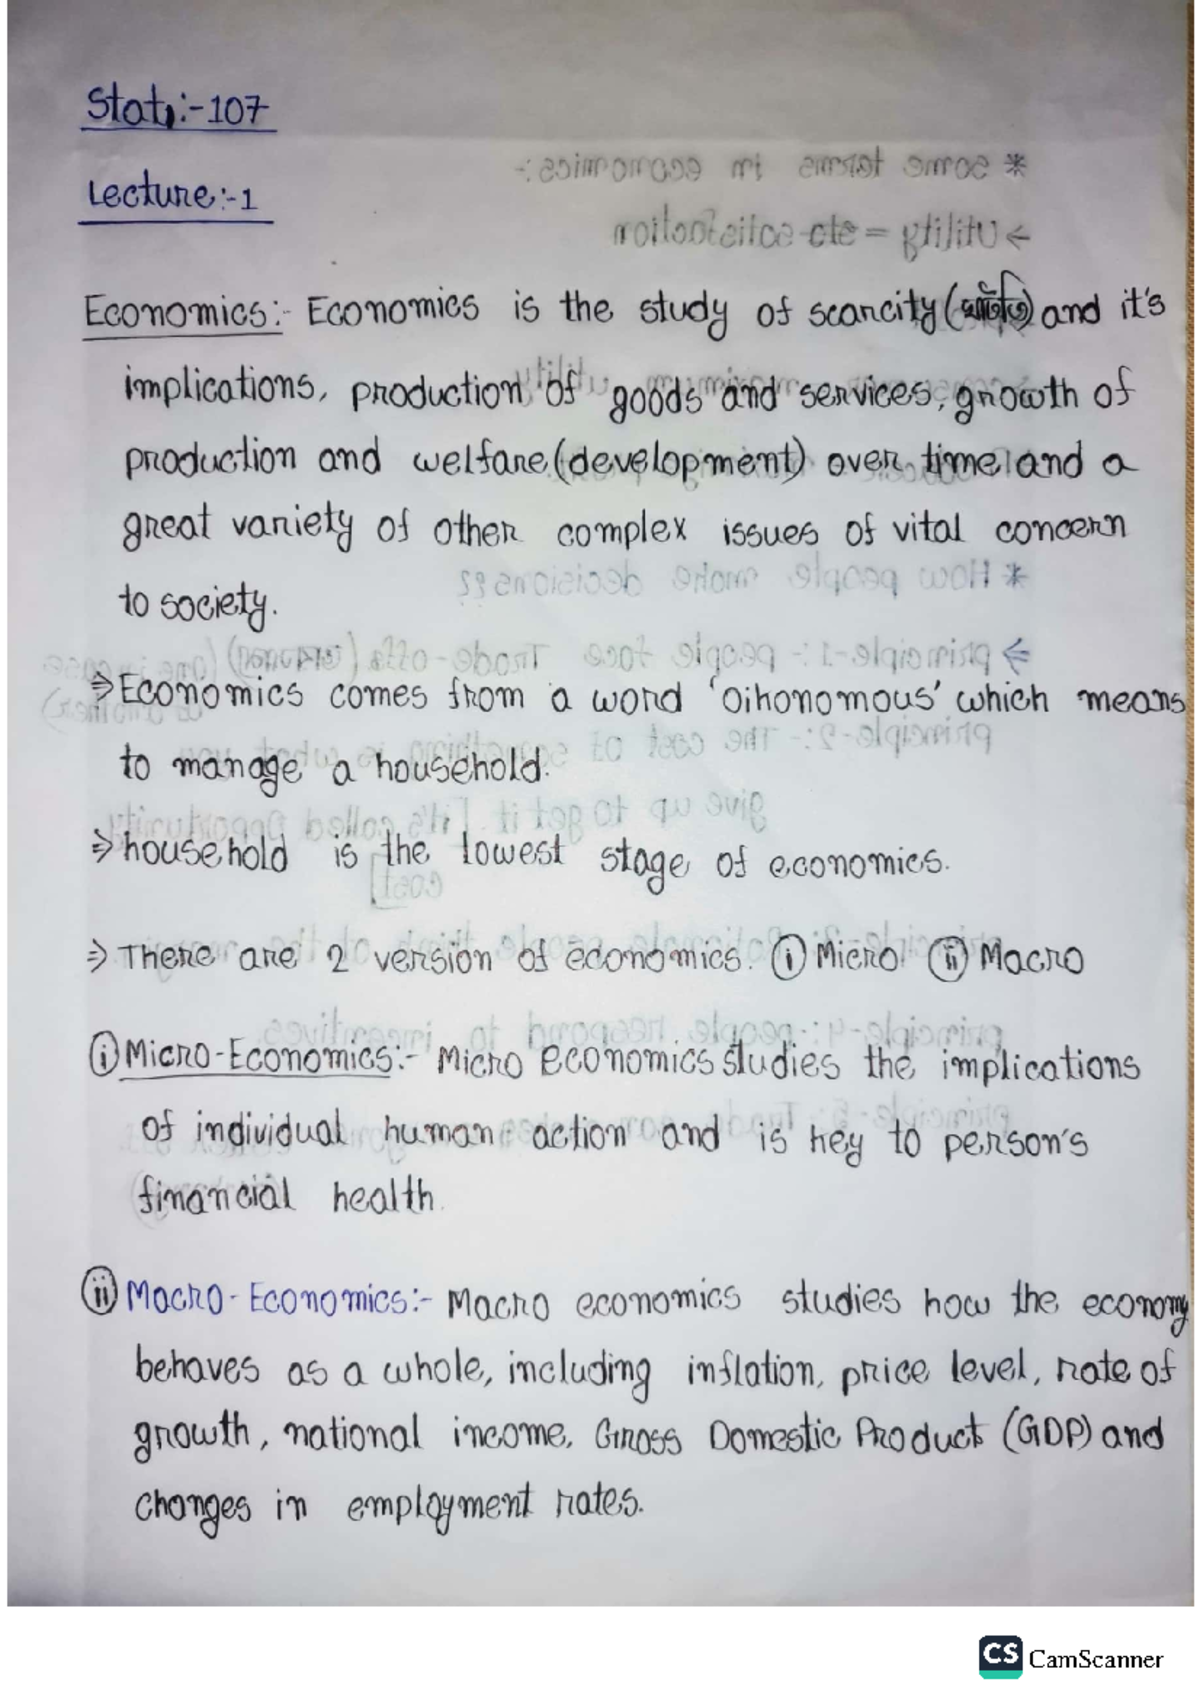 Stat:-107
Lecture:-1
Economics:- Economics is the study of scarcity ( ) and it's
implications, production of goods and services, growth of
production and welfare (development) over time and a
great variety of other complex issues of vital concern
to society.
⇒ Economics comes from a word 'oikonomous' which means
to manage a household.
⇒ household is the lowest stage of economics.
⇒ There are 2 version of economics. ⓘ Micro ⓘⓘ Macro
ⓘ Micro-Economics:- Micro economics studies the implications
of individual human action and is key to person's
financial health.
ⓘⓘ Macro-Economics:- Macro economics studies how the economy
behaves as a whole, including inflation, price level, rate of
growth, national income, Gross Domestic Product (GDP) and
changes in employment rates.
CS CamScanner